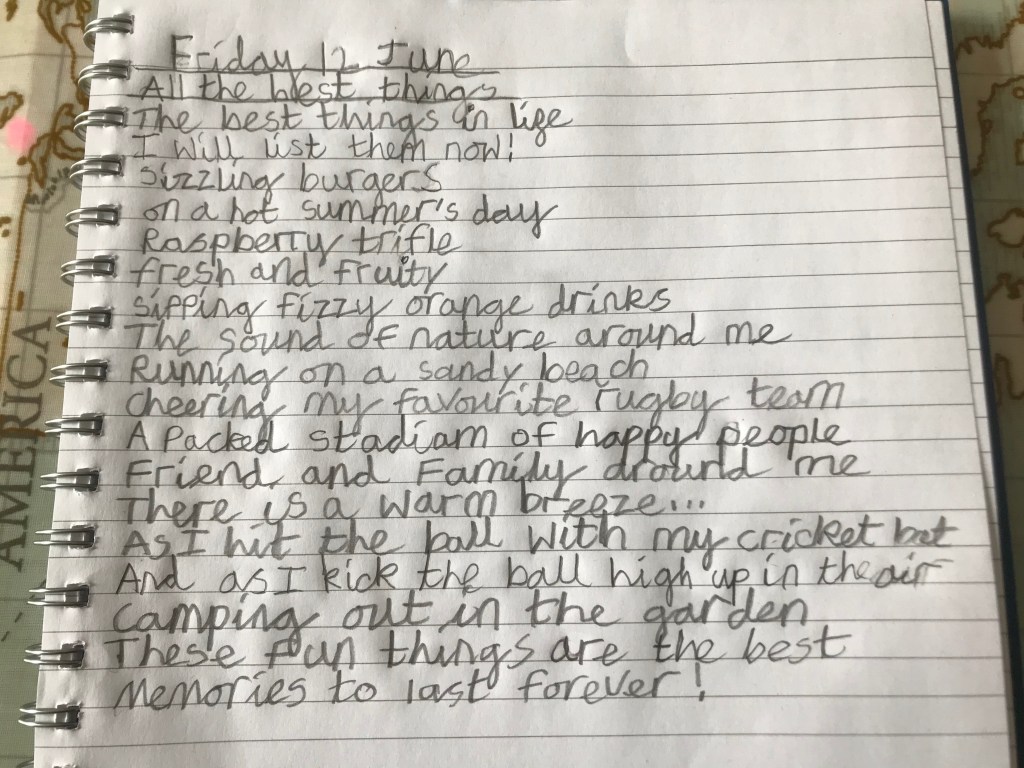 Friday 12 June
All the best things
The best things in life
I will list them now!
Sizzling burgers
on a hot summer's day
Raspberry trifle
fresh and fruity
sipping fizzy orange drinks
The sound of nature around me
Running on a sandy beach
cheering my favourite rugby team
A packed stadiam of happy people
Friend and Family around me
There is a warm breeze...
As I hit the ball with my cricket bat
And as I kick the ball high up in the air
camping out in the garden
These fun things are the best
memories to last forever!
AMERICA